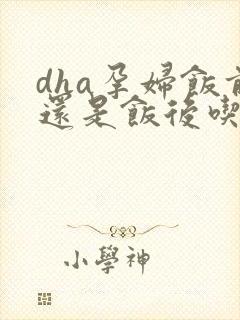 dha孕婦飯前
還是飯後喫
小學神